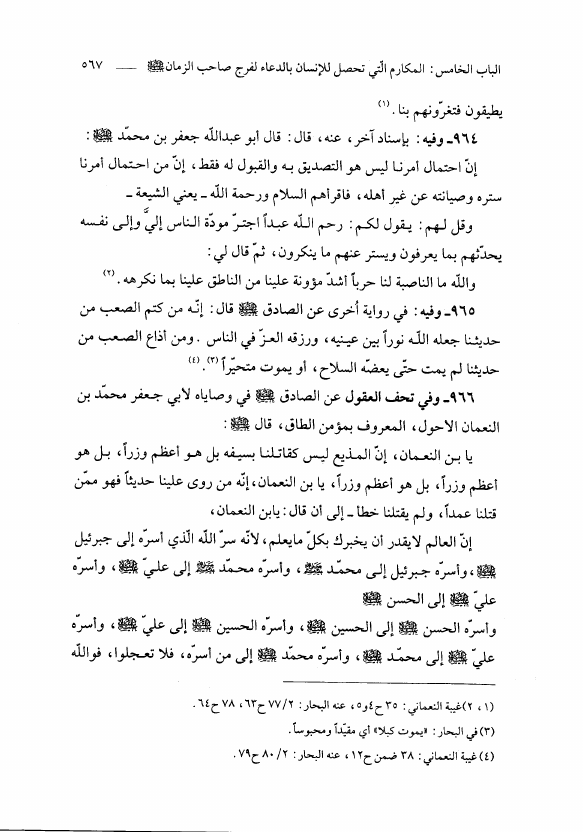 الباب الخامس: المكارم الّتي تحصل للإنسان بالدعاء لفرج صاحب الزمان ﷺ ـــ ٥٦٧
يطيقون فتغرّونهم بنا.(١)
٩٦٤ـ وفيه: بإسناد آخر، عنه، قال: قال أبو عبدالله جعفر بن محمّد ﷺ:
إنّ احتمال أمرنا ليس هو التصديق به والقبول له فقط، إنّ من احتمال أمرنا
ستره وصيانته عن غير أهله، فاقرأهم السلام ورحمة الله ـ يعني الشيعة ـ
وقل لهم: يقول لكم: رحم الله عبداً اجترّ مودّة الناس إليَّ وإلى نفسه
يحدّثهم بما يعرفون ويستر عنهم ما ينكرون، ثمّ قال لي:
والله ما الناصبة لنا حرباً أشدّ مؤونة علينا من الناطق علينا بما نكرهه.(٢)
٩٦٥ـ وفيه: في رواية اُخرى عن الصادق ﷺ قال: إنّه من كتم الصعب من
حديثنا جعله الله نوراً بين عينيه، ورزقه العزّ في الناس. ومن أذاع الصعب من
حديثنا لم يمت حتّى يعضّه السلاح، أو يموت متحيّراً(٣).(٤)
٩٦٦ـ وفي تحف العقول عن الصادق ﷺ في وصاياه لابي جعفر محمّد بن
النعمان الاحول، المعروف بمؤمن الطاق، قال ﷺ:
يا بن النعمان، إنّ المذيع ليس كقاتلنا بسيفه بل هو أعظم وزراً، بل هو
أعظم وزراً، بل هو أعظم وزراً، يا بن النعمان، إنّه من روى علينا حديثاً فهو ممّن
قتلنا عمداً، ولم يقتلنا خطأ ـ إلى أن قال: يابن النعمان،
إنّ العالم لايقدر أن يخبرك بكلّ مايعلم، لانّه سرّ الله الّذي أسرّه إلى جبرئيل
ﷺ، وأسرّه جبرئيل إلى محمّد ﷺ، وأسرّه محمّد ﷺ إلى عليّ ﷺ، وأسرّه
عليّ ﷺ إلى الحسن ﷺ
وأسرّه الحسن ﷺ إلى الحسين ﷺ، وأسرّه الحسين ﷺ إلى عليّ ﷺ، وأسرّه
عليّ ﷺ إلى محمّد ﷺ، وأسرّه محمّد ﷺ إلى من أسرّه، فلا تعجلوا، فوالله
(١، ٢) غيبة النعماني: ٣٥ ح٤و٥، عنه البحار: ٧٧/٢ ح٦٣، ٧٨ ح٦٤.
(٣) في البحار: «يموت كبلا» أي مقيّداً ومحبوساً.
(٤) غيبة النعماني: ٣٨ ضمن ح١٢، عنه البحار: ٨٠/٢ ح٧٩.